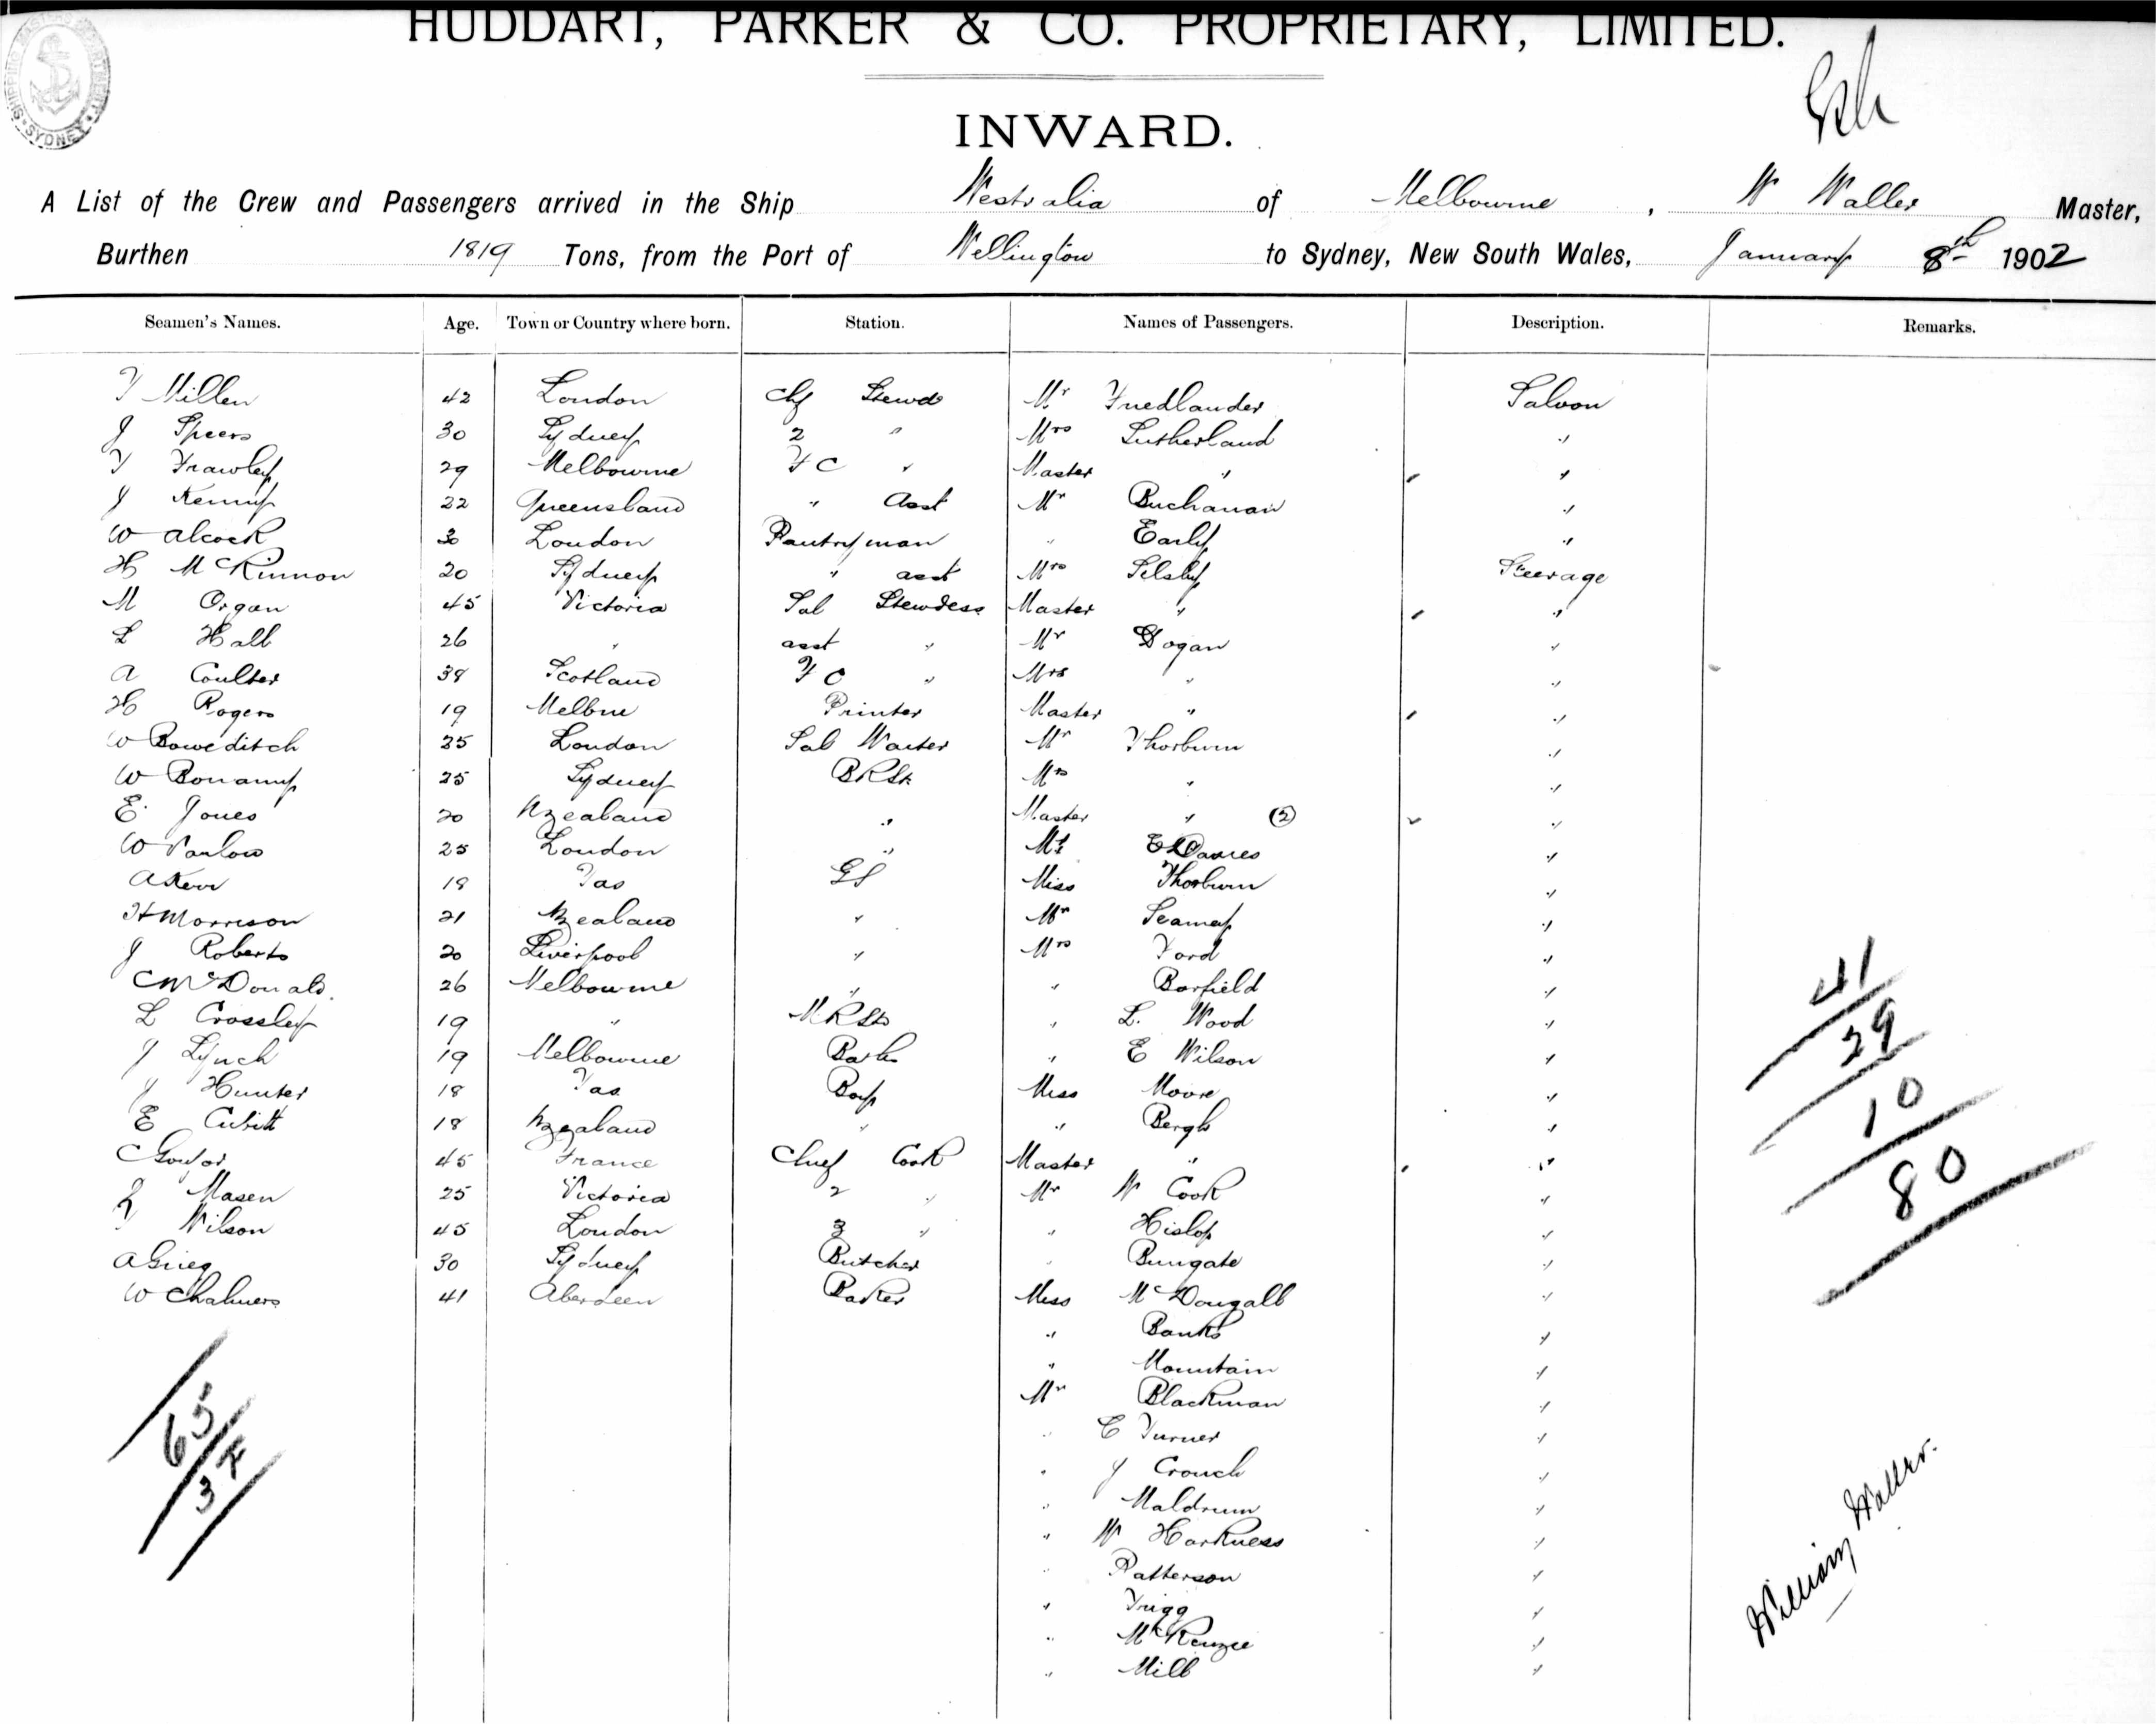 HUDDART, PARKER & CO. PROPRIETARY, LIMITED.
SYDNEY
INWARD.
A List of the Crew and Passengers arrived in the Ship Westralia of Melbourne, W Waller Master,
Burthen 1819 Tons, from the Port of Wellington to Sydney, New South Wales, January 8th 1902
Seamen's Names. Age. Town or Country where born. Station. Names of Passengers. Description. Remarks.
T Millen 42 London Chf Stewd Mr Friedlander Saloon
J Speers 30 Sydney 2 " Mrs Sutherland "
T Frawley 29 Melbourne F C " Master " "
J Kenny 22 Queensland " Asst Mr Buchanan "
W Alcock 30 London Pantryman " Early "
H McKinnon 20 Sydney " asst Mrs Silsby Steerage
M Organ 45 Victoria Sal Stewdess Master " "
L Hall 26 " asst " Mr Dogan "
A Coulter 38 Scotland F C " Mrs " "
H Rogers 19 Melbne Printer Master " "
W Boweditch 25 London Sal Waiter Mr Thorburn "
W Bonamy 25 Sydney BRSt Mrs " "
E. Jones 20 NZealand " Master " (2) "
W Panlow 25 London " Mr E Davies "
A Kerr 18 Tas GS Miss Thorburn "
H Morrison 21 NZealand " Mr Seamey "
J Roberts 20 Liverpool " Mrs Ford "
C McDonald 26 Melbourne " " Barfield "
L Crossley 19 " MRSt " L. Wood "
J Lynch 19 Melbourne Barks " E Wilson "
J Hunter 18 Tas Boy Miss Moore "
E Cubitt 18 NZealand " " Bergh "
C 45 France Chief Cook Master " "
Masen 25 Victoria 2 " Mr W Cook "
T Wilson 45 London 3 " " Hislop "
A Grieg 30 Sydney Butcher " Bungate "
W Chalmers 41 Aberdeen Baker Miss McDougall "
" Banks "
" Mountain "
Mr Blackman "
" C Turner "
" J Crouch "
" Maldrum "
" W Harkness "
" Patterson "
" Trigg "
" McKenzie "
" Mill "
41
29
10
80
65
37
William Waller.